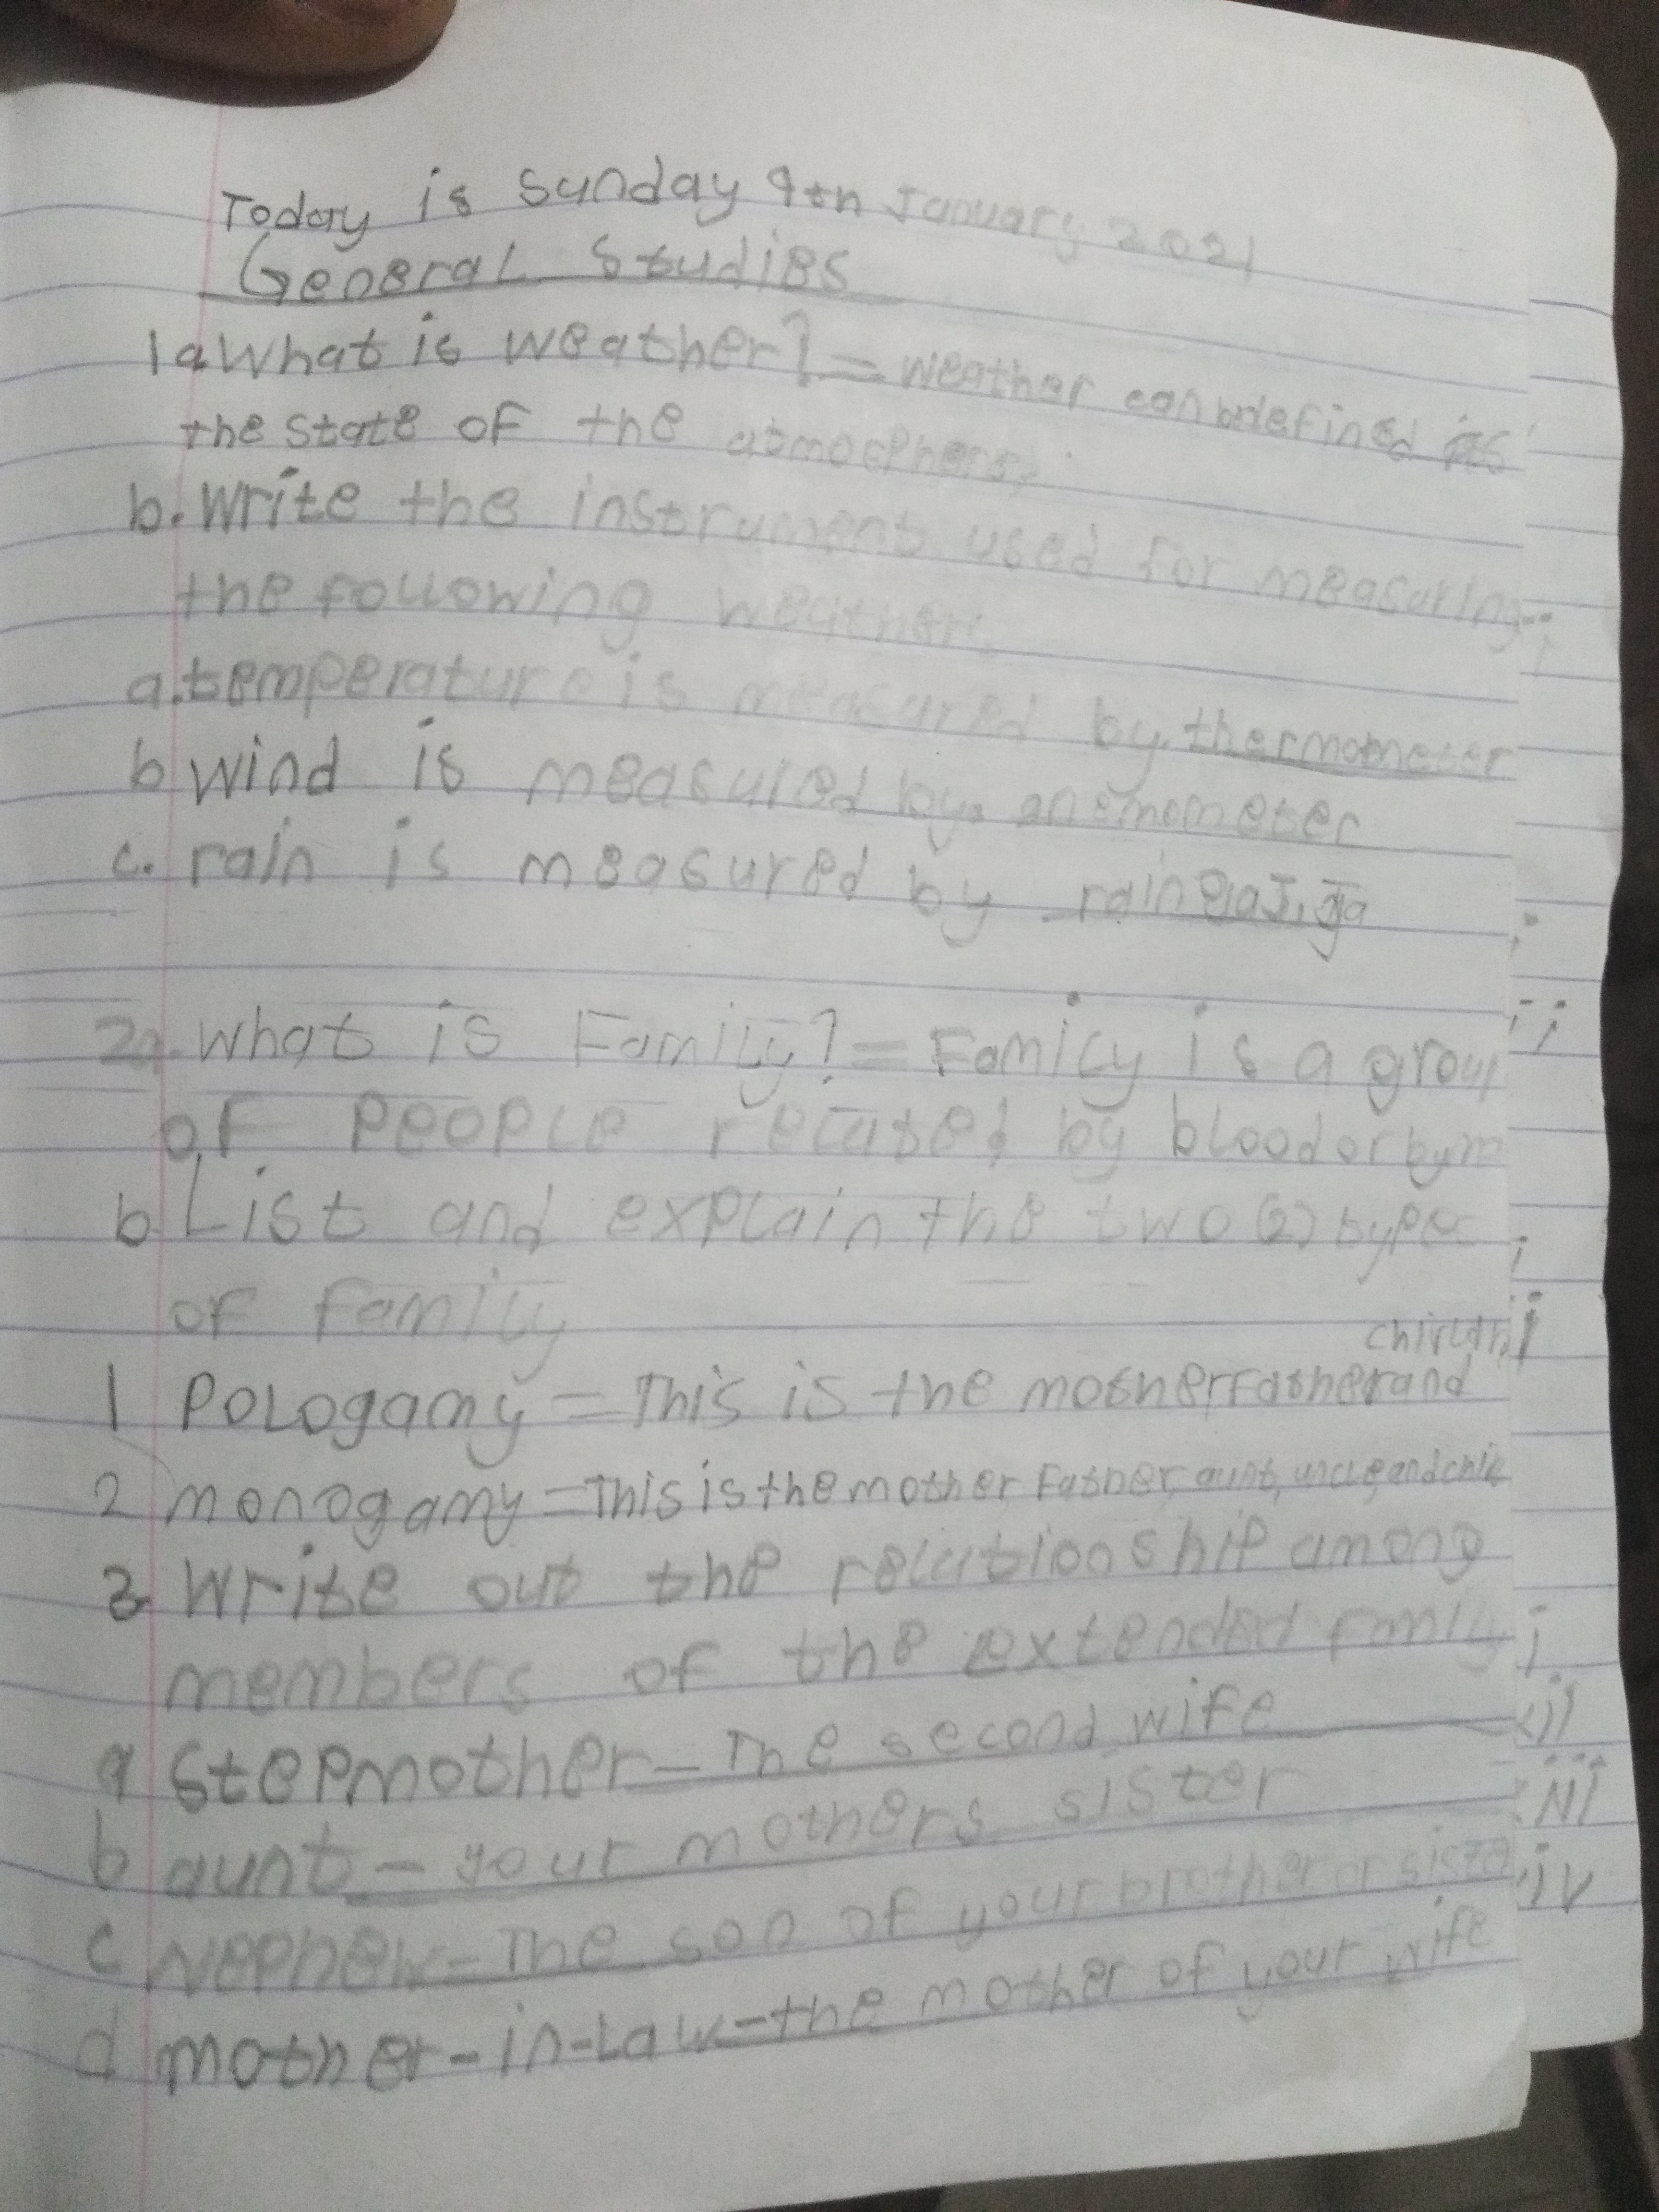 Today is Sunday 9th January 2021
General Studies
1a What is weather? = weather can be defined as
the state of the atmosphere.
b. Write the instrument used for measuring
the following weather.
a. temperature is measured by thermometer
b wind is measured by. anemometer
c. rain is measured by rain
2a. What is Family? = Family is a group
of people related by blood or by m
b List and explain the two (2) types
of family
1 Pologamy = This is the mother, Father and
2 monogamy = This is the mother Father, aunt, uncle, and chil
3 Write out the relationship among
members of the extended Family
a Stepmother - The second wife
b aunt - your mothers sister
c Nephew - The son of your brother or siste
d mother-in-law - the mother of your wife
i
ii
iii
iv